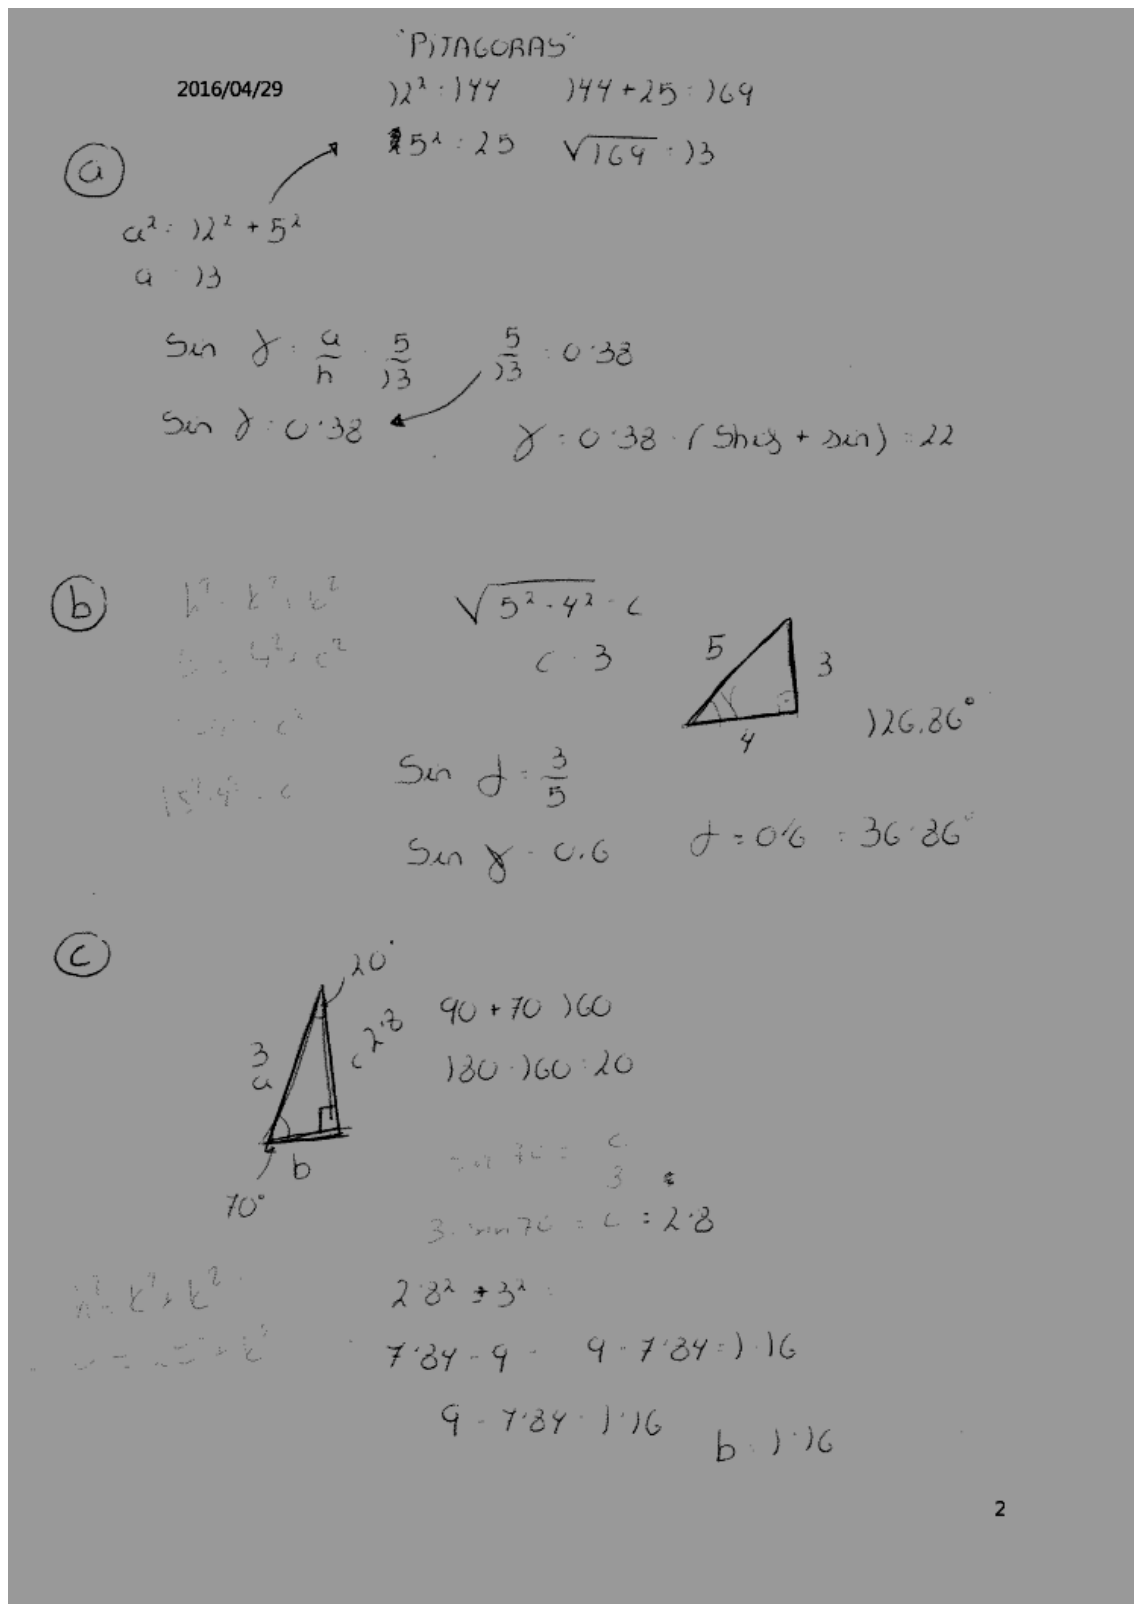 "PiTAGORAS"
2016/04/29
12² = 144 144 + 25 = 169
5² = 25 √169 = 13
a
a² = 12² + 5²
a = 13
Sin γ = a/h = 5/13 5/13 = 0'38
Sin γ = 0'38
γ = 0'38 = (Shis + sin) = 22
b
h² = k² + k² √5² - 4² = c
4² + c² c = 3
5
3
4
126.86°
c²
Sin γ = 3/5
Sin γ = 0.6 γ = 0'6 = 36'86°
c
20°
3
a
c 2'8
b
70°
90 + 70 = 160
180 - 160 = 20
sin 70 = c/3
3. sin 70 = c = 2'8
h² = k² + k²
2'8² + 3² =
7'84 - 9 = 9 - 7'84 = 1'16
9 - 7'84 = 1'16
b = 1'16
2